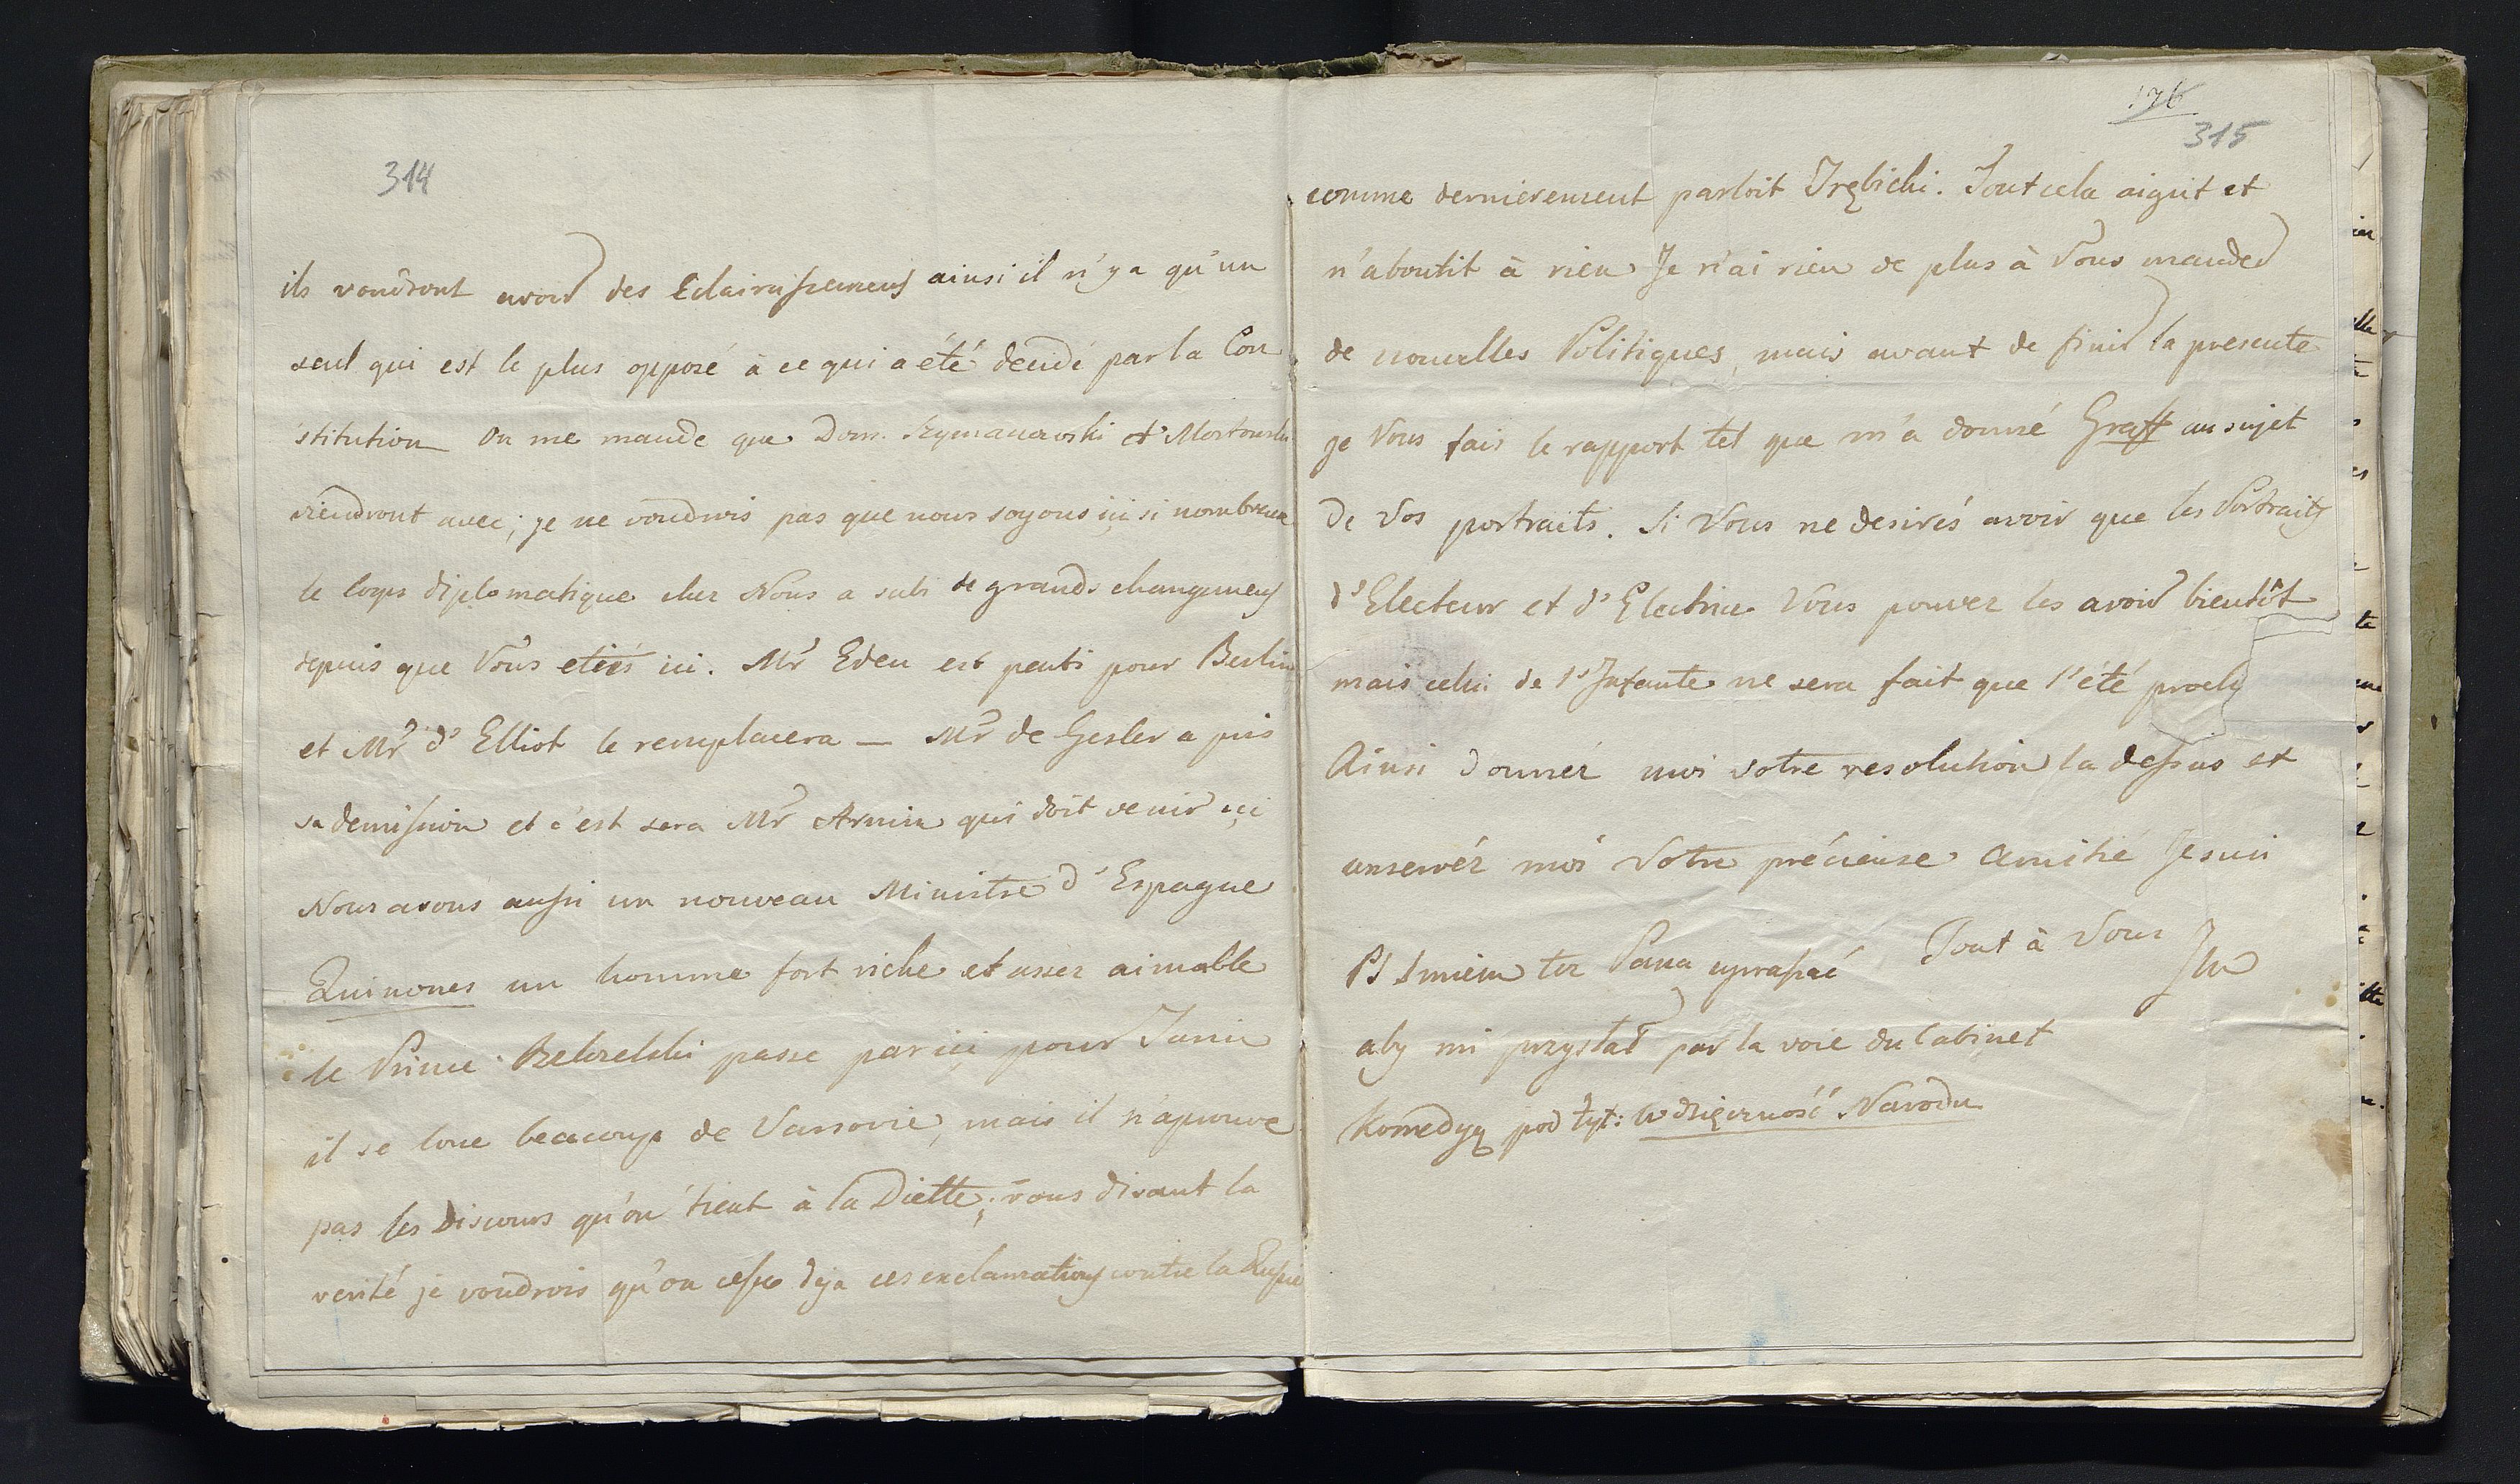 314
ils voudront avoir des Eclaircissemens ainsi il n'y a qu'un
seul qui est le plus opposé à ce qui a été decidé par la Con
stitution On me mande que Dom. Szymanowski et Mostowski
viendront avec; je ne voudrois pas que nous soyons içi si nombreux
le corps diplomatique chez Nous a subi de grands changemens
depuis que Vous etiés ici. Mr Eden est parti pour Berlin
et Mr d'Elliot le remplacera — Mr de Gesler a pris
sa demission et c'est sera Mr Arnim qui doit venir içi
Nous avons aussi un nouveau Ministre d'Espagne
Quinones un homme fort riche et assez aimable
le Prince Belozelski passe par içi pour Turin
il se loue beaucoup de Varsovie, mais il n'aprouve
pas les Discours qu'on tient à la Diette; vous disant la
verité je voudrois qu'on cesse deja ces exclamations contre la Russie
176
315
comme dernièrement parloit Trębicki. Tout cela aigrit et
n'aboutit à rien Je n'ai rien de plus à Vous mander
de nouvelles Politiques, mais avant de finir la presente
je Vous fais le rapport tel que m'a donné Graff au sujet
de Vos portraits. Si Vous ne desirés avoir que les Portraits
d'Electeur et d'Electrice Vous pouvez les avoir bientôt
mais celui de l'Infante ne sera fait que l'été proch
Ainsi donnéz moi votre resolution la dessus et
conservéz moi Votre précieuse Amitié Je suis
Tout à Vous
PS Smiem tez Pana upraszać
aby mi przysłał par la voie du Cabinet
Komedyą pod tyt: Wdzięczność Narodu